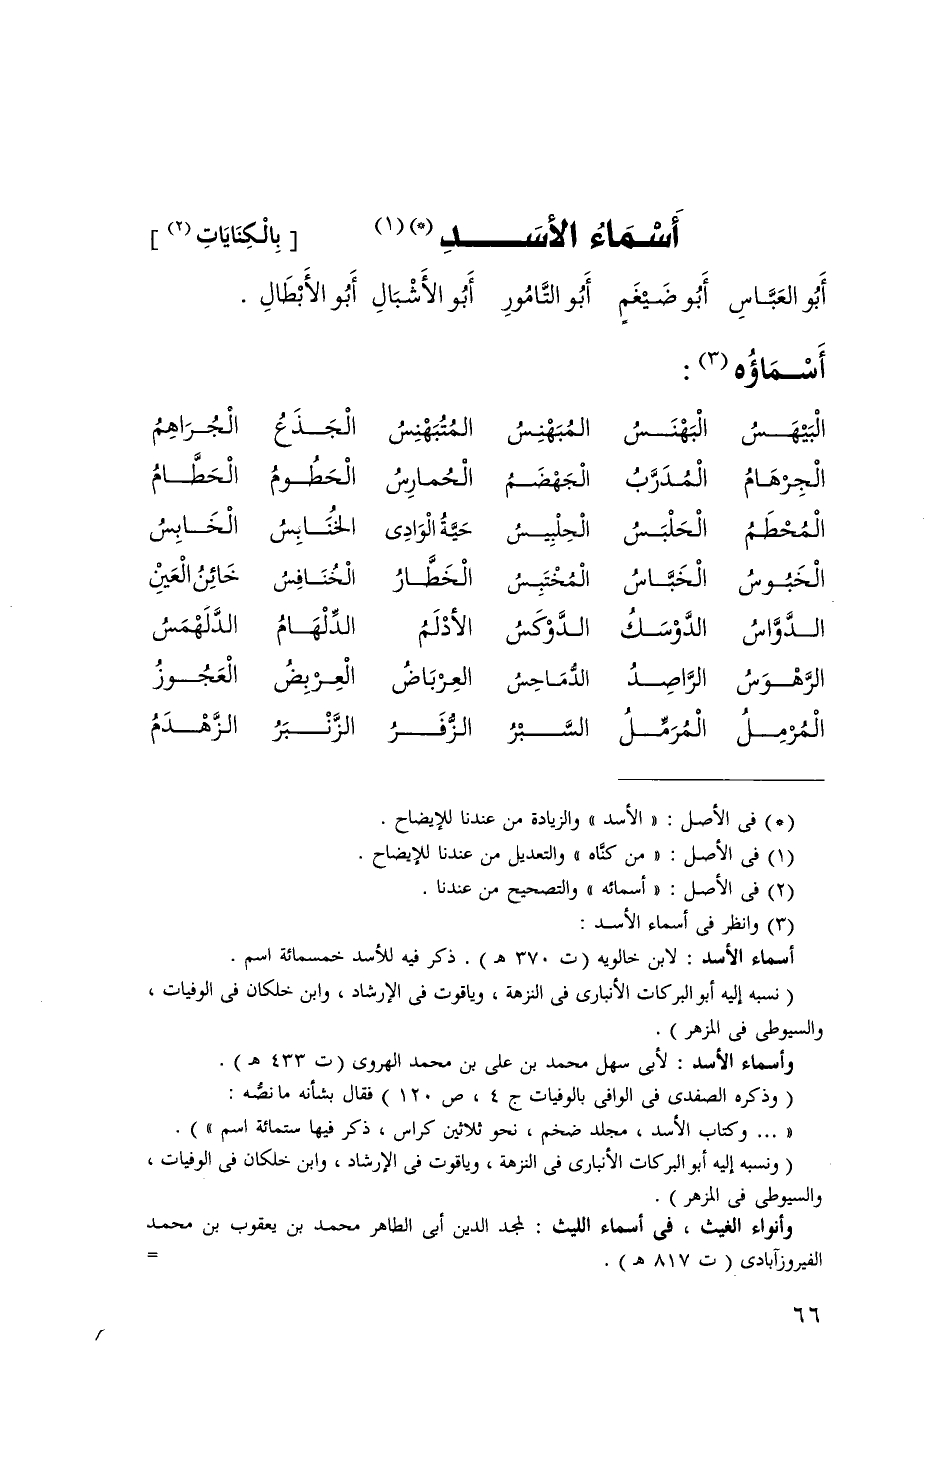 أَسْمَاءُ الأسَدِ (*)(١) [ بِالْكِنَايَاتِ (٢) ]
أَبُو العَبَّاسِ أَبُو ضَيْغَمٍ أَبُو التَّامُورِ أَبُو الأَشْبَالِ أَبُو الأَبْطَالِ .
أَسْمَاؤُه (٣) :
الْبَيْهَسُ الْبَهْنَسُ المُبَهْنِسُ المُتَبَهْنِسُ الْجَذَعُ الْجُرَاهِمُ
الْجِرْهَامُ الْمُدَرَّبُ الْجَهْضَمُ الْحُمارِسُ الْحَطُومُ الْحَطَّامُ
الْمُحْطَمُ الْحَلْبَسُ الْحِلْبِيسُ حَيَّةُ الْوَادِى الخُنَابِسُ الْخَابِسُ
الْخَبُوسُ الْخَبَّاسُ الْمُخْتَبِسُ الْخَطَّارُ الْخُنَافِسُ خَائِنُ الْعَيْنِ
الدَّوَّاسُ الدَّوْسَكُ الدَّوْكَسُ الأدْلَمُ الدِّلْهَامُ الدَّلَهْمَسُ
الرَّهْوَسُ الرَّاصِدُ الدُّمَاحِسُ العِرْبَاضُ الْعِرْبِضُ الْعَجُوزُ
الْمُرْمِلُ الْمُرَمِّلُ السَّبْرُ الزُّفَرُ الزَّنْبَرُ الزَّهْدَمُ
(*) فى الأصل : « الأسد » والزيادة من عندنا للإيضاح .
(١) فى الأصل : « من كنَّاه » والتعديل من عندنا للإيضاح .
(٢) فى الأصل : « أسمائه » والتصحيح من عندنا .
(٣) وانظر فى أسماء الأسد :
أسماء الأسد : لابن خالويه (ت ٣٧٠ هـ ) . ذكر فيه للأسد خمسمائة اسم .
( نسبه إليه أبو البركات الأنبارى فى النزهة ، وياقوت فى الإرشاد ، وابن خلكان فى الوفيات ،
والسيوطى فى المزهر ) .
وأسماء الأسد : لأبى سهل محمد بن على بن محمد الهروى (ت ٤٣٣ هـ ) .
( وذكره الصفدى فى الوافى بالوفيات ج ٤ ، ص ١٢٠ ) فقال بشأنه ما نصُّه :
« ... وكتاب الأسد ، مجلد ضخم ، نحو ثلاثين كراس ، ذكر فيها ستمائة اسم » ) .
( ونسبه إليه أبو البركات الأنبارى فى النزهة ، وياقوت فى الإرشاد ، وابن خلكان فى الوفيات ،
والسيوطى فى المزهر ) .
وأنواء الغيث ، فى أسماء الليث : لمجد الدين أبى الطاهر محمد بن يعقوب بن محمد
الفيروزآبادى ( ت ٨١٧ هـ ) . =
٦٦